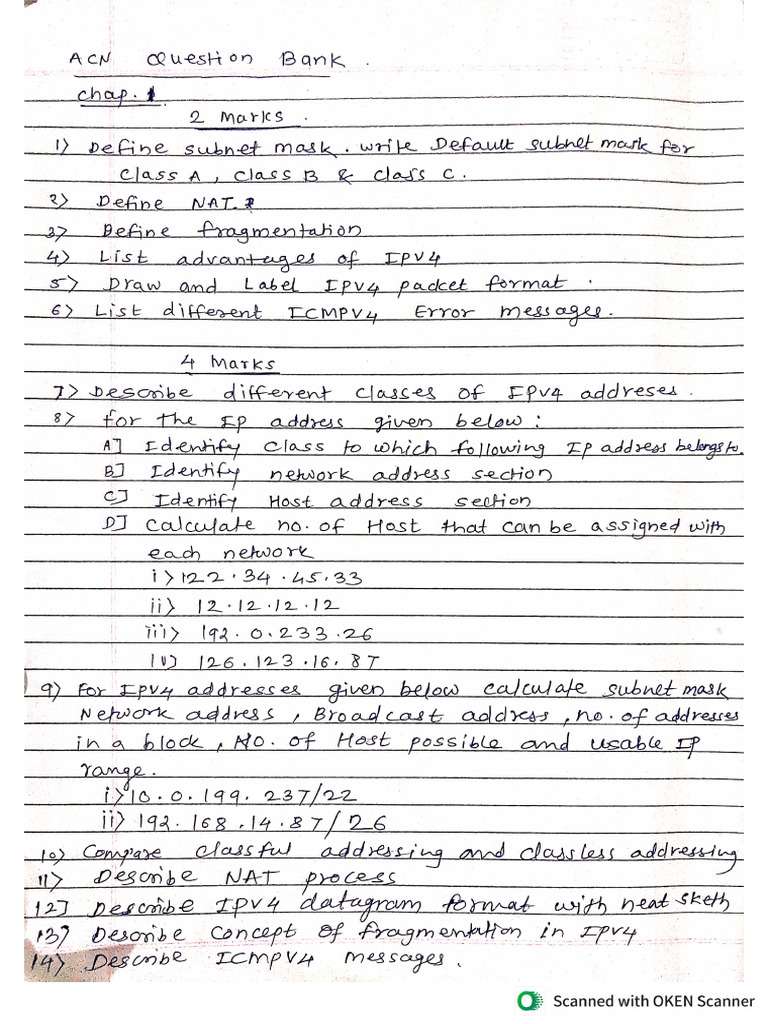 ACN Question Bank.
Chap. 1
2 Marks.
1) Define subnet mask. write Default subnet mask for
class A, class B & class C.
2) Define NAT.
3) Define fragmentation
4) List advantages of IPV4
5) Draw and Label IPV4 packet format.
6) List different ICMPV4 Error messages.
4 Marks
7) Describe different classes of IPV4 addreses.
8) for the IP address given below:
A] Identify class to which following Ip address belongs to.
B] Identify network address section
C] Identify Host address section
D] Calculate no. of Host that can be assigned with
each network
i) 122.34.45.33
ii) 12.12.12.12
iii) 192.0.233.26
iv) 126.123.16.87
9) For IPV4 addresses given below calculate subnet mask
Network address, Broadcast address, no. of addresses
in a block, NO. of Host possible and usable IP
range.
i) 10.0.199.237/22
ii) 192.168.14.87/26
10) Compare classful addressing and classless addressing
11) Describe NAT process
12] Describe IPV4 datagram format with neat sketh
13) Describe concept of fragmentation in IPV4
14) Describe ICMPV4 messages.
Scanned with OKEN Scanner